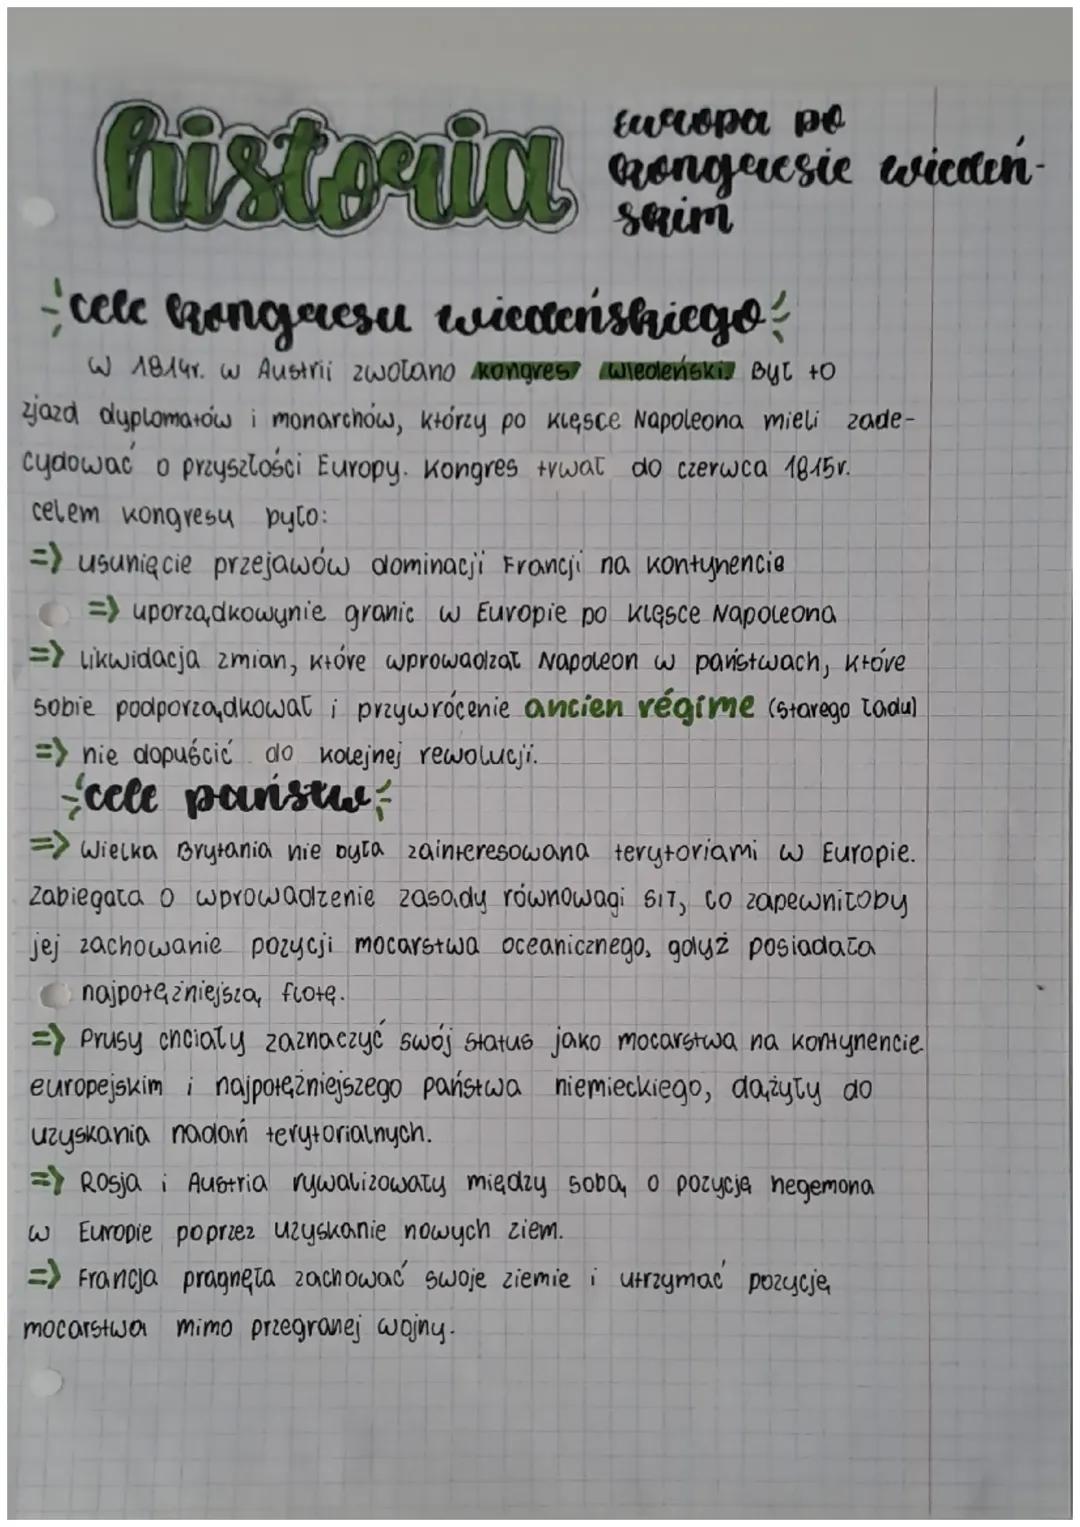 historia
Europa po
kongresie wiedeń-
skim
cele kongresu wiedeńskiego
W 1814r. w Austrii zwołano kongres wiedeński. Był to
zjazd dyplomatów i monarchów, którzy po klęsce Napoleona mieli zade-
cydować o przyszłości Europy. Kongres trwał do czerwca 1815r.
celem kongresu było:
=> usunięcie przejawów dominacji Francji na kontynencie
=> uporządkowynie granic w Europie po klęsce Napoleona
=> likwidacja zmian, które wprowadzał Napoleon w państwach, które
sobie podporządkował i przywrócenie ancien régime (starego ładu)
=> nie dopuścić do kolejnej rewolucji.
cele państw
=> Wielka Brytania nie była zainteresowana terytoriami w Europie.
Zabiegała o wprowadzenie zasady równowagi sił, co zapewniłoby
jej zachowanie pozycji mocarstwa oceanicznego, gdyż posiadała
najpotężniejszą flotę.
=> Prusy chciały zaznaczyć swój status jako mocarstwa na kontynencie
europejskim i najpotężniejszego państwa niemieckiego, dążyły do
uzyskania nadań terytorialnych.
=> Rosja i Austria rywalizowały między sobą o pozycję hegemona
w Europie poprzez uzyskanie nowych ziem.
=> Francja pragnęła zachować swoje ziemie i utrzymać pozycję
mocarstwa mimo przegranej wojny.